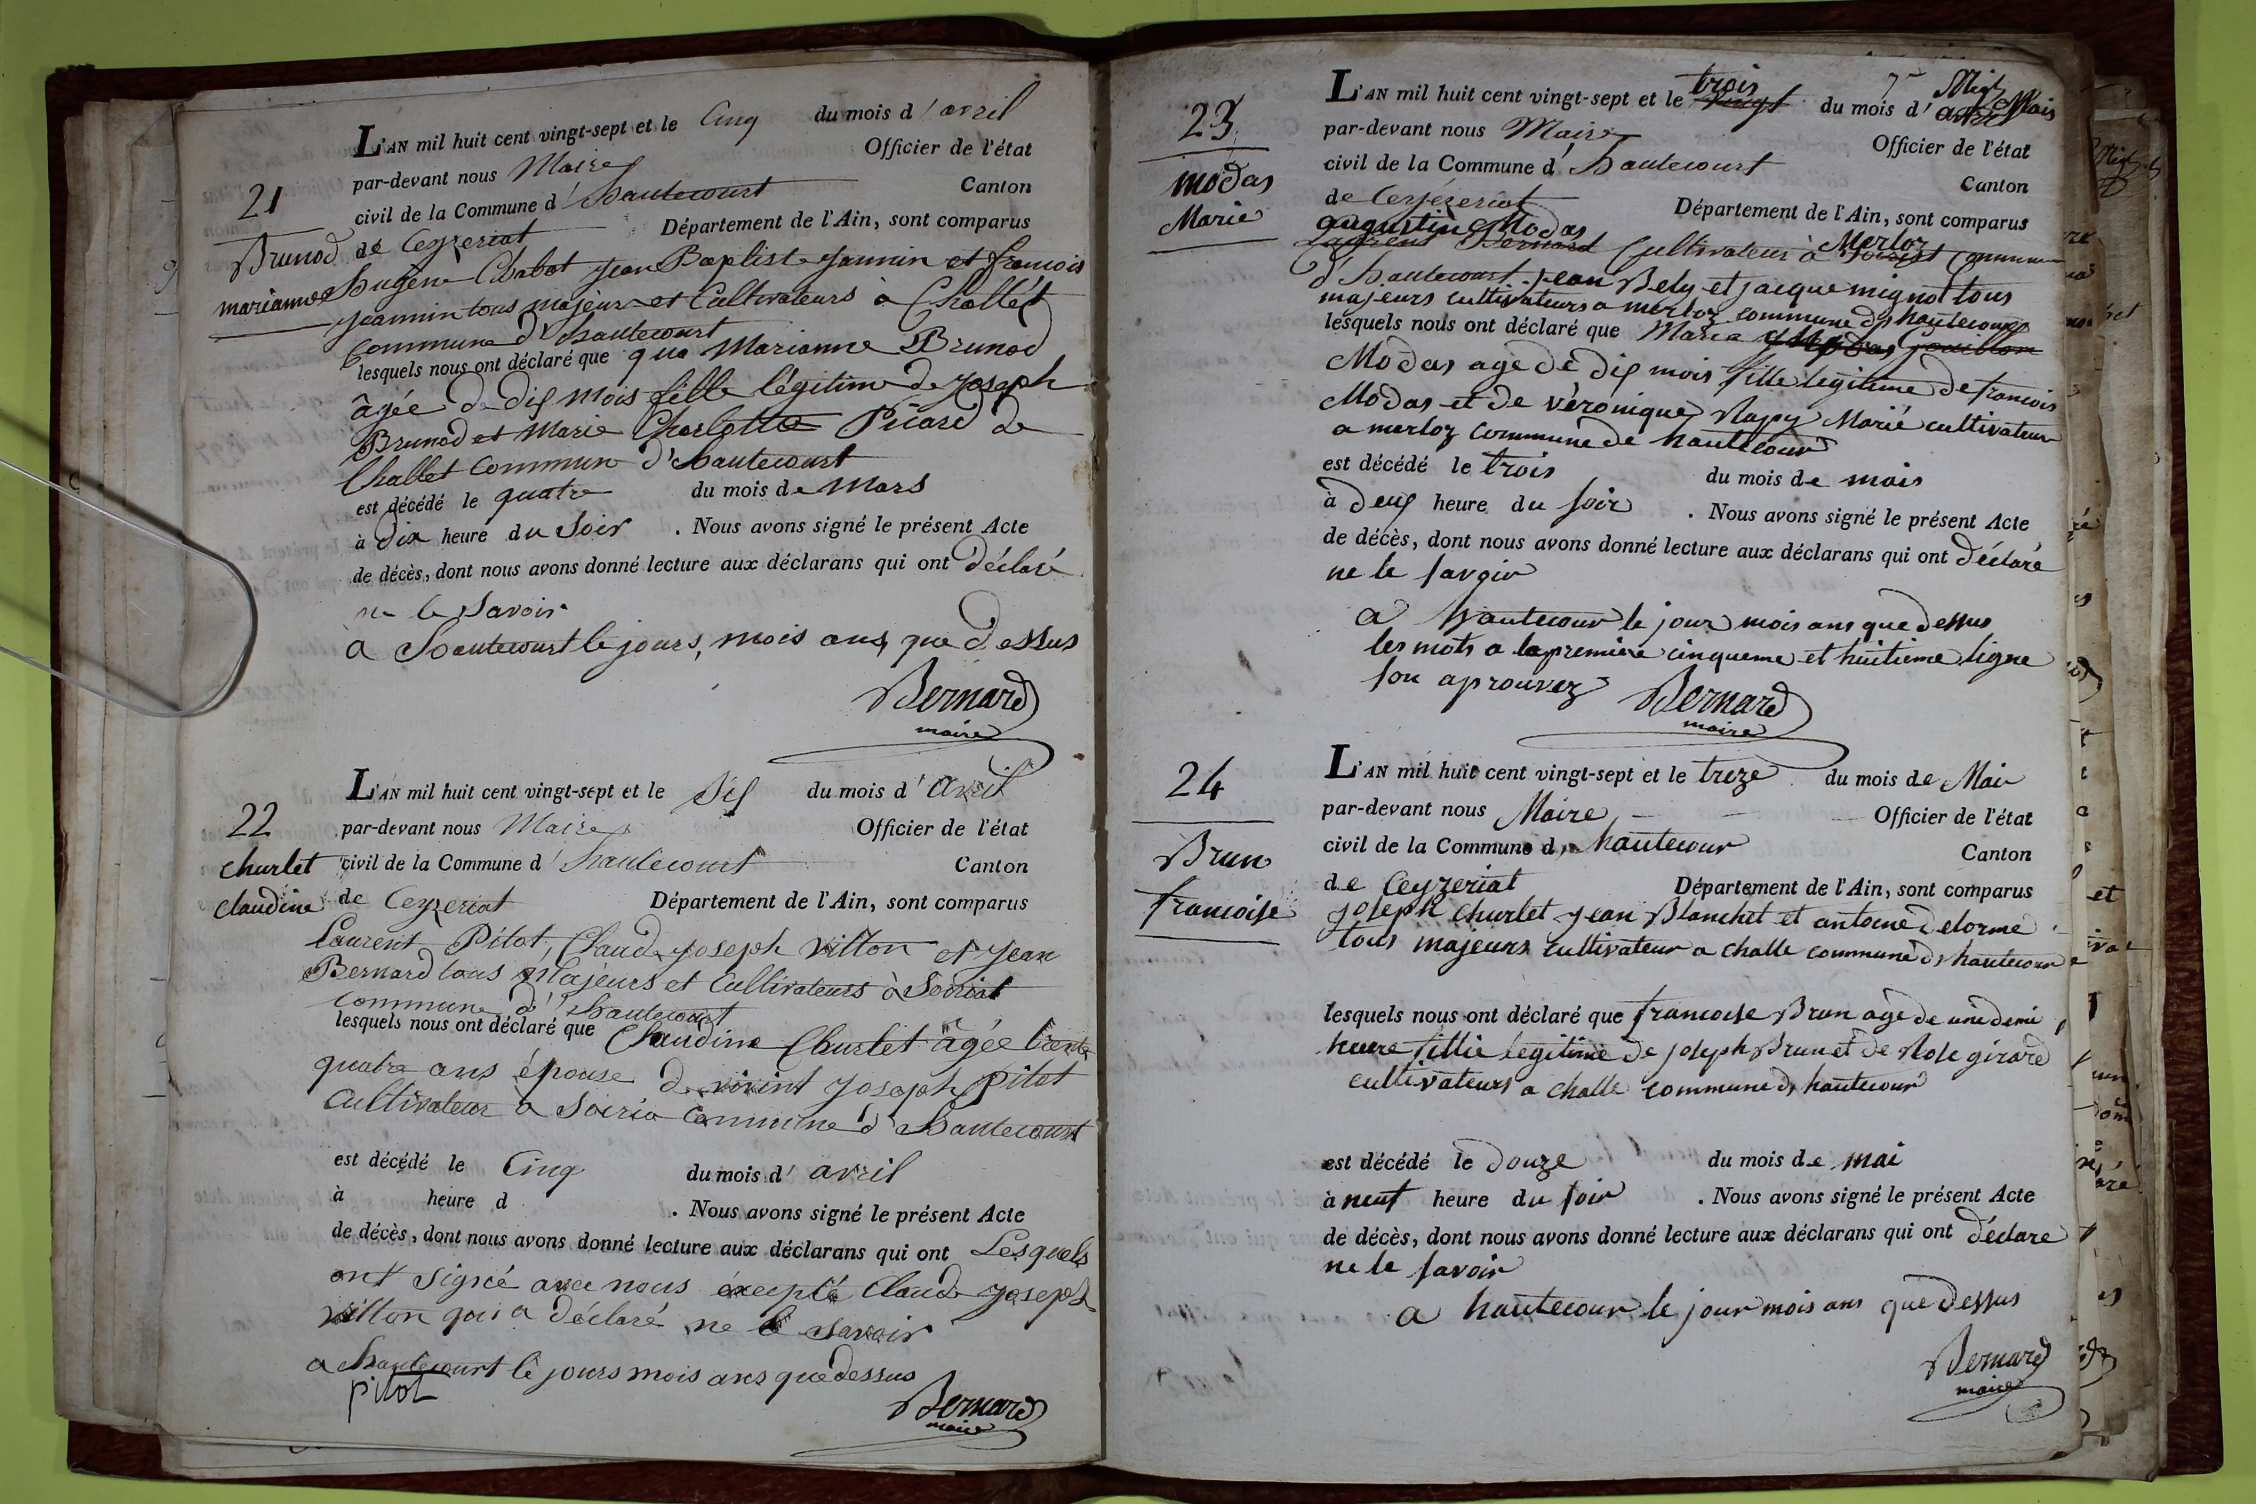 21
Brunod
marianne
L'AN mil huit cent vingt-sept et le Cinq du mois d'avril
par-devant nous Maire Officier de l'état
civil de la Commune d'hautecourt Canton
de Ceyzeriat Département de l'Ain, sont comparus
hugene Chabot jean Baptiste jannin et francois
jeannin tous majeurs et Cultivateurs à Challet
Commune d'hautecourt
lesquels nous ont déclaré que que Marianne Brunod
âgée de dix mois fille légitime de joseph
Brunod et Marie Charlotte Picard de
Challet Commune d'hautecourt
est décédé le quatre du mois de Mars
à dix heure du Soir . Nous avons signé le présent Acte
de décès, dont nous avons donné lecture aux déclarans qui ont déclaré
ne le Savoir
a hautecourt le jours, mois ans, que dessus
Bernard
maire
22
churlet
claudine
L'AN mil huit cent vingt-sept et le Six du mois d'avril
par-devant nous Maire Officier de l'état
civil de la Commune d'hautecourt Canton
de Ceyzeriat Département de l'Ain, sont comparus
Laurent Pitot, Claude joseph villon et jean
Bernard tous Majeurs et Cultivateurs à Soiriat
commune d'hautecourt
lesquels nous ont déclaré que Claudine Churlet âgée trente
quatre ans épouse de joseph pitot
Cultivateur a Soiria Commune d'hautecourt
est décédé le Cinq du mois d'avril
à heure d . Nous avons signé le présent Acte
de décès, dont nous avons donné lecture aux déclarans qui ont Lesquels
ont signé avec nous éxcepté Claude joseph
villon qui a déclaré ne le Savoir
a hautecourt le jours mois ans que dessus
pitot
Bernard
maire
23
modas
Marie
L'AN mil huit cent vingt-sept et le trois vingt du mois d' Mais
par-devant nous Maire Officier de l'état
civil de la Commune d'hautecourt Canton
de Ceyzeriat Département de l'Ain, sont comparus
augustin Modas Merloz
Laurent Bernard Cultivateur à Soiriat Commune
d'hautecourt jean Bely et jacque mignot tous
majeurs cultivateurs a merloz commune d'hautecourt
lesquels nous ont déclaré que Marie
Modas age de dix mois fille legitime de francois
Modas et de véronique Rapy Marié cultivateur
a merloz commune de hautecour
est décédé le trois du mois de mais
à deux heure du soir . Nous avons signé le présent Acte
de décès, dont nous avons donné lecture aux déclarans qui ont déclaré
ne le savoir
a hautecour le jour mois ans que dessus
les mots a la premiere cinqueme et huitieme ligne
son aprouvez
Bernard
maire
24
Brun
francoise
L'AN mil huit cent vingt-sept et le treze du mois de Mai
par-devant nous Maire Officier de l'état
civil de la Commune d, hautecour Canton
de Ceyzeriat Département de l'Ain, sont comparus
joseph churlet jean Blanchet et antoine delorme
tous majeurs cultivateur a challe commune d, hautecour
lesquels nous ont déclaré que francoise Brun age de une demi
heure fillie legitime de joseph Brun et de Rose girard
cultivateurs a challe commune d, hautecour
est décédé le douze du mois de mai
à neuf heure du soir . Nous avons signé le présent Acte
de décès, dont nous avons donné lecture aux déclarans qui ont déclaré
ne le savoir
a hautecour le jour mois ans que dessus
Bernard
maire